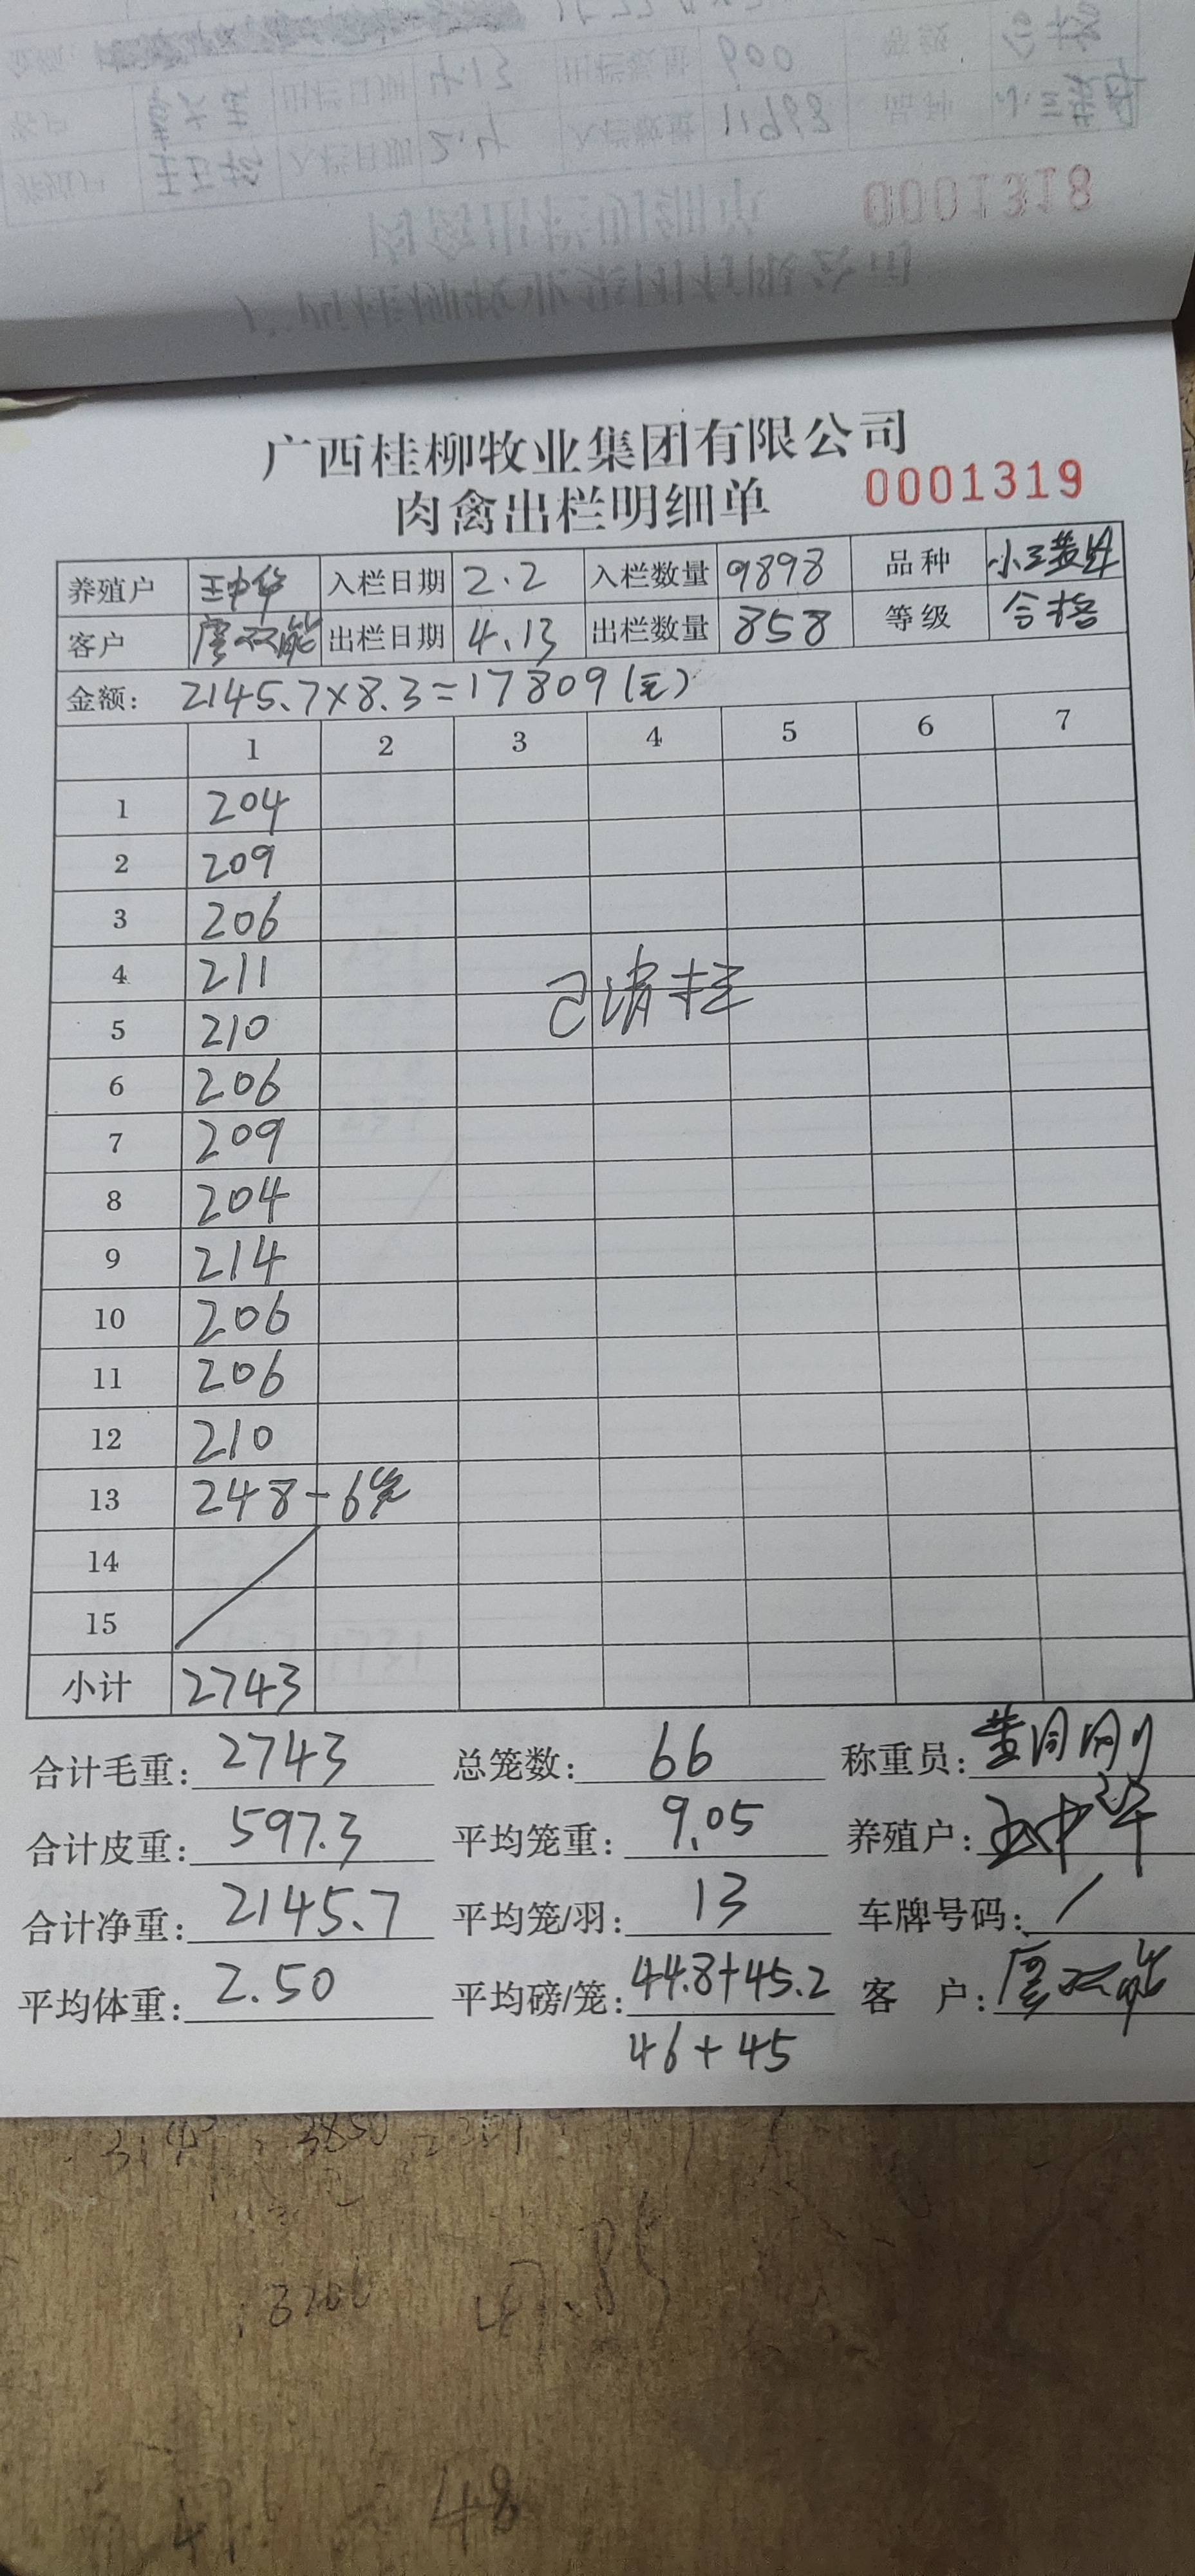 0001318
广西桂柳牧业集团有限公司
肉禽出栏明细单 0001319
养殖户 王中华 入栏日期 2.2 入栏数量 9898 品种 小三黄母
客户 廖双能 出栏日期 4.13 出栏数量 858 等级 合格
金额: 2145.7×8.3=17809(元)
1 2 3 4 5 6 7
1 204
2 209
3 206
4 211
已清栏
5 210
6 206
7 209
8 204
9 214
10 206
11 206
12 210
13 248-6笼
14
15
小计 2743
合计毛重: 2743 总笼数: 66 称重员: 黄同刚
合计皮重: 597.3 平均笼重: 9.05 养殖户: 王中华
合计净重: 2145.7 平均笼/羽: 13 车牌号码: /
平均体重: 2.50 平均磅/笼: 44.8+45.2 客户: 廖双能
46+45
3850
3200
47.85
48